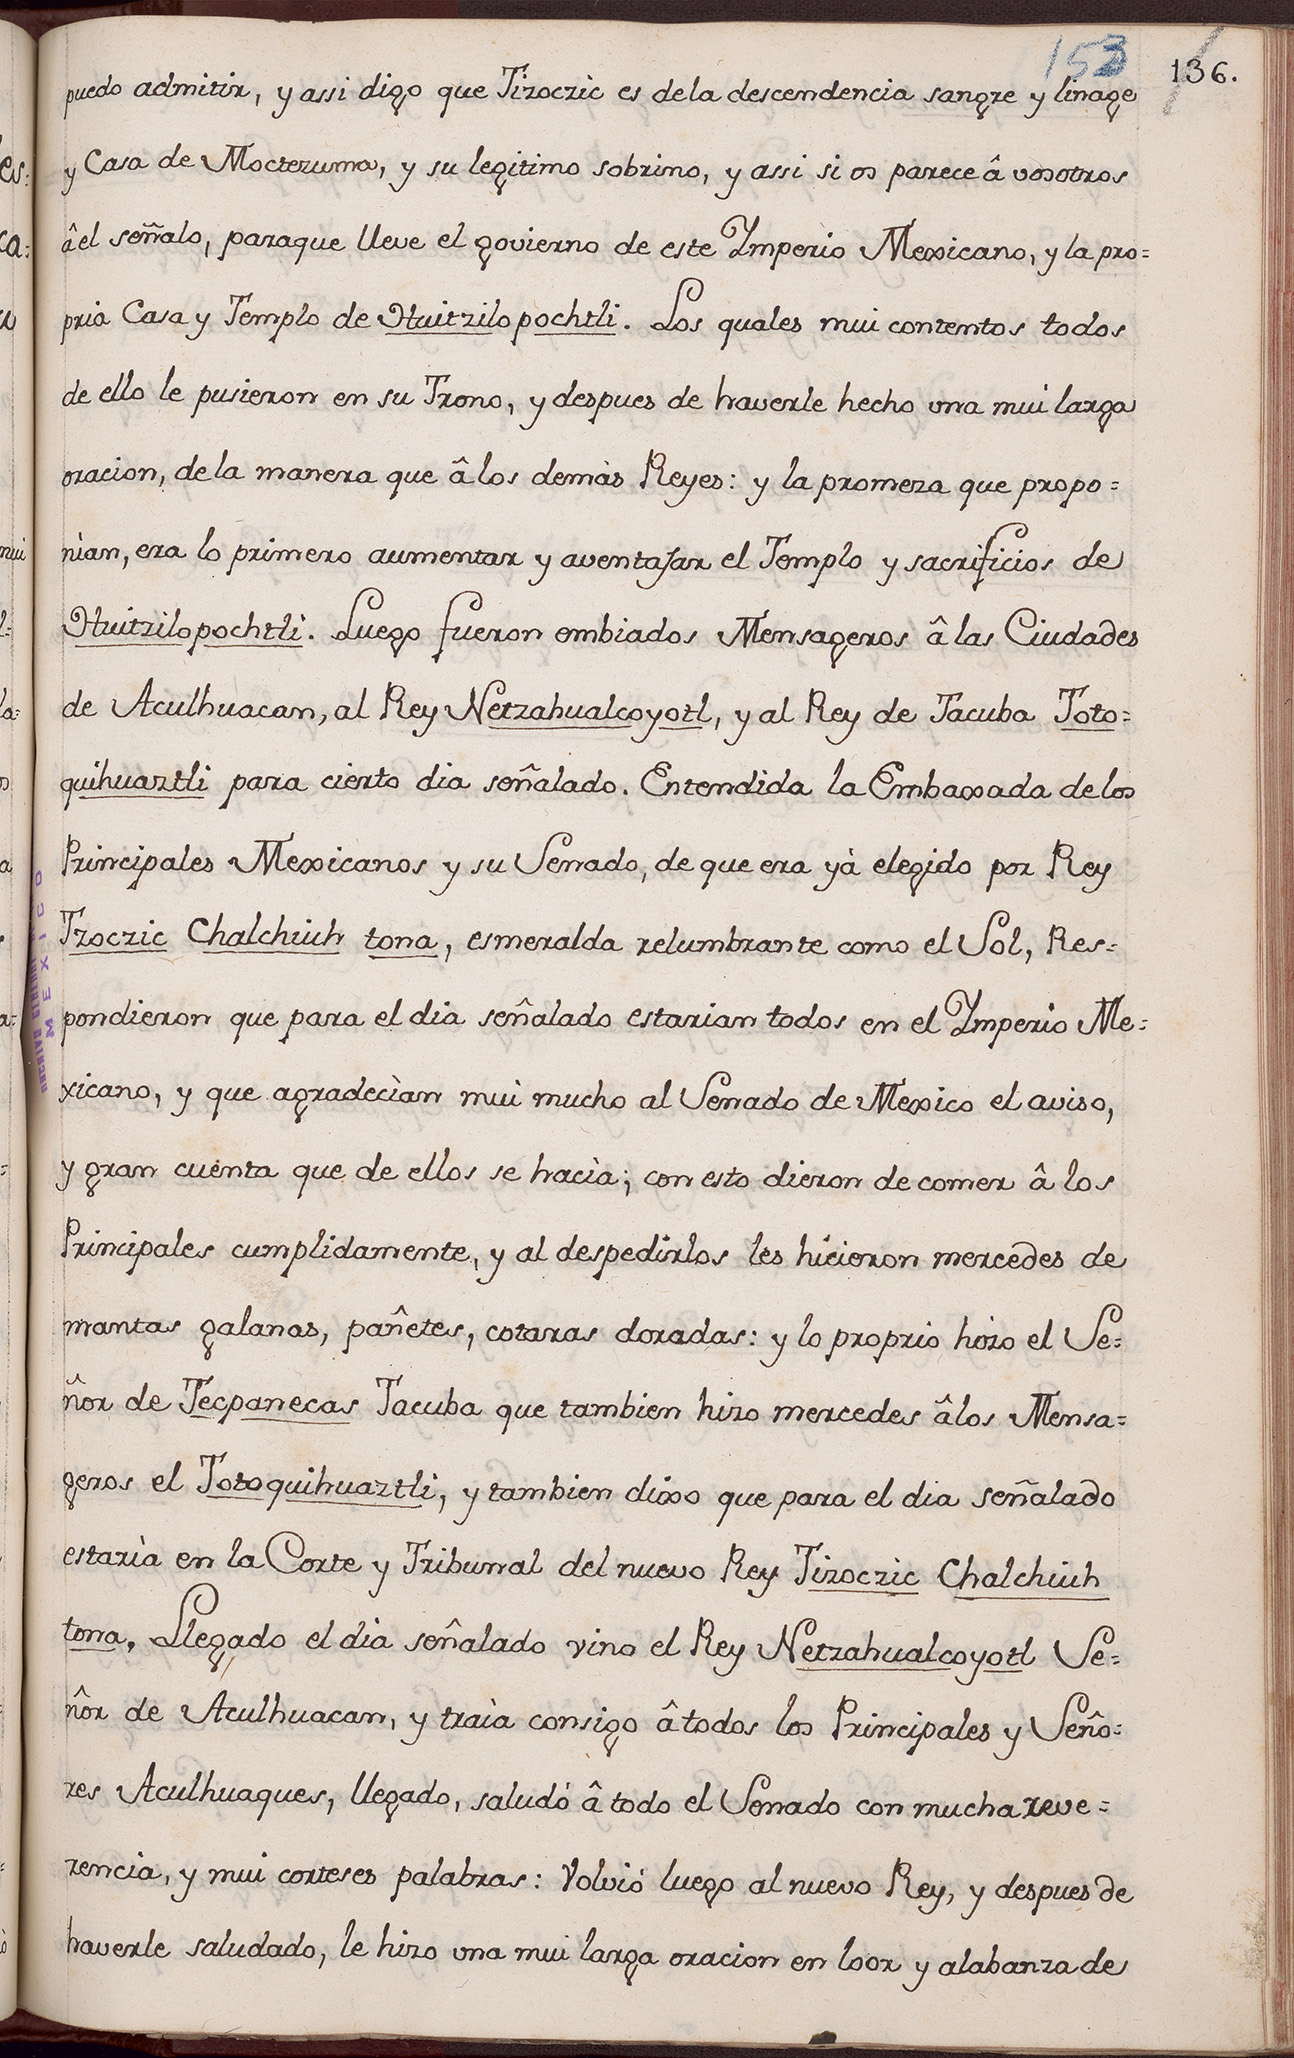 153 136.
puedo admitir, y assi digo que Tizoczic es dela descendencia sangre y linage
y Casa de Moctezuma, y su legitimo sobrino, y assi si os parece â vosotros
âel señalo, paraque lleve el govierno de este Ymperio Mexicano, y la pro=
pria Casa y Templo de Huitzilopochtli. Los quales mui contentos todos
de ello le pusieron en su Trono, y despues de haverle hecho una mui larga
oracion, de la manera que â los demàs Reyes: y la promeza que propo=
nìan, era lo primero aumentar y aventajar el Templo y sacrificios de
Huitzilopochtli. Luego fueron embiados Mensageros â las Ciudades
de Aculhuacan, al Rey Netzahualcoyotl, y al Rey de Tacuba Toto=
quihuaztli para cierto dia señalado. Entendida la Embaxada de los
Principales Mexicanos y su Senado, de que era yà elegido por Rey
Tzoczic Chalchiuh tona, esmeralda relumbrante como el Sol, Res=
pondieron que para el dia señalado estarian todos en el Ymperio Me=
xicano, y que agradecìan mui mucho al Senado de Mexico el aviso,
y gran cuenta que de ellos se hacìa; con esto dieron de comer â los
Principales cumplidamente, y al despedirlos les hicieron mercedes de
mantas galanas, pañetes, cotaras doradas: y lo proprio hizo el Se=
ñor de Tecpanecas Tacuba que tambien hizo mercedes âlos Mensa=
geros el Totoquihuaztli, y tambien dixo que para el dia señalado
estarìa en la Corte y Tribunal del nuevo Rey Tizoczic Chalchiuh
tona. Llegado el dia señalado vino el Rey Netzahualcoyotl Se=
ñor de Aculhuacan, y traìa consigo â todos los Principales y Seño=
res Aculhuaques, llegado, saludó â todo el Senado con mucha reve=
rencia, y mui corteses palabras: Volvió luego al nuevo Rey, y despues de
haverle saludado, le hizo una mui larga oracion en loor y alabanza de